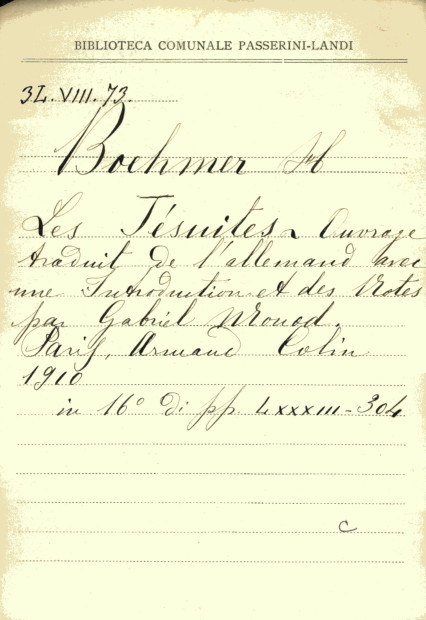 BIBLIOTECA COMUNALE PASSERINI-LANDI
3L.VIII.73.
Boehmer H
Les Jésuites. Ouvrage
traduit de l'allemand avec
une Introduction et des Notes
par Gabriel Monod.
Paris, Armand Colin
1910
in 16° di pp. LXXXIII-304
C